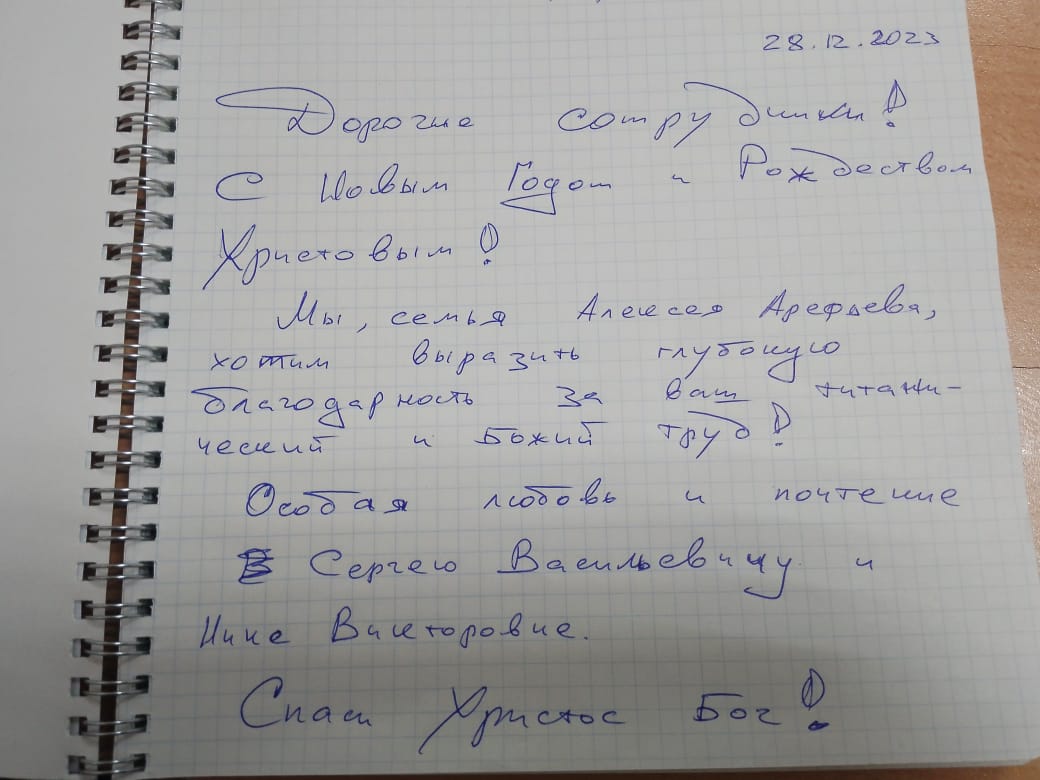 28.12.2023
Дорогие сотрудники!
С Новым Годом и Рождеством
Христовым!
Мы, семья Алексея Арефьева,
хотим выразить глубокую
благодарность за ваш титани-
ческий и Божий труд!
Особая любовь и почтение
Сергею Васильевичу и
Нине Викторовне.
Спаси Христос Бог!